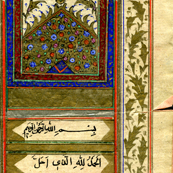 بِسْمِ اللهِ الرَّحْمٰنِ الرَّحِيْمِ
الحَمْدُ لِلّٰهِ الَّذِي أَحَلَّ